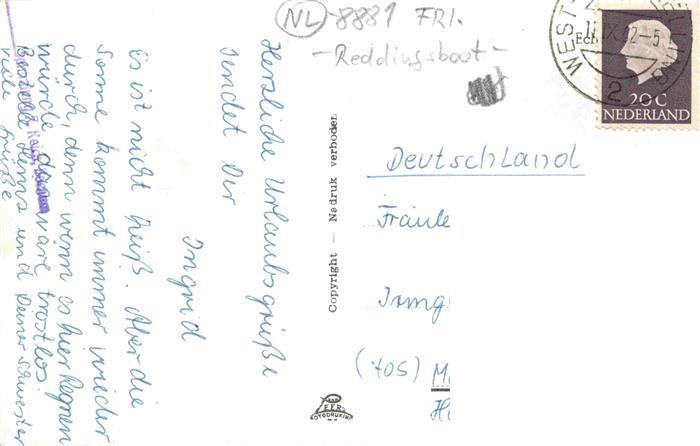 NL-8881 FRI.
-Reddingsboot-
WEST-
2
20 C
NEDERLAND
Herzliche Urlaubsgrüße
sendet Dir
Ingrid
Es ist nicht heiß. Aber die
Sonne kommt immer wieder
durch, denn wenn es hier Regnen
würde, das wäre trostlos.
Bestelle Heins und Deiner Schwester
viele Grüße
Copyright — Nadruk verboden
VAN
LEER
FOTODRUKINK
Deutschland
Fräule
Irmg
(705) M
H